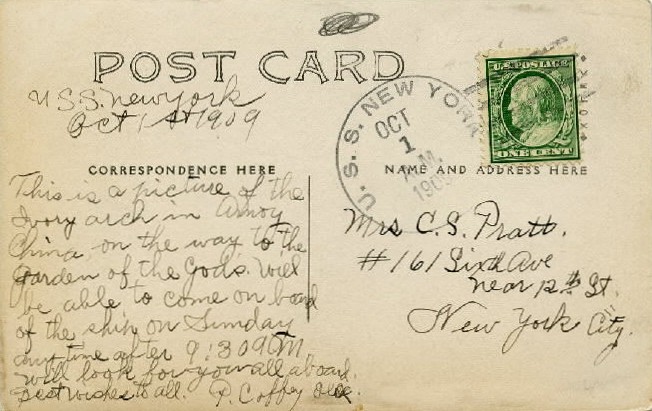 POST CARD
U.S.S. New York
Oct 1st 1909
U.S.S. NEW YORK
OCT
1
A.M.
1909
U.S. POSTAGE
ONE CENT
CORRESPONDENCE HERE
NAME AND ADDRESS HERE
This is a picture of the
Ivory arch in Amoy
China, on the way to the
garden of the Gods. Will
be able to come on board
of the ship on Sunday
any time after 9:30 AM
will look for you all aboard.
Best wishes to all. P. Coffey
Mrs C.S. Pratt.
#161 Sixth Ave
near 12th St.
New York City.